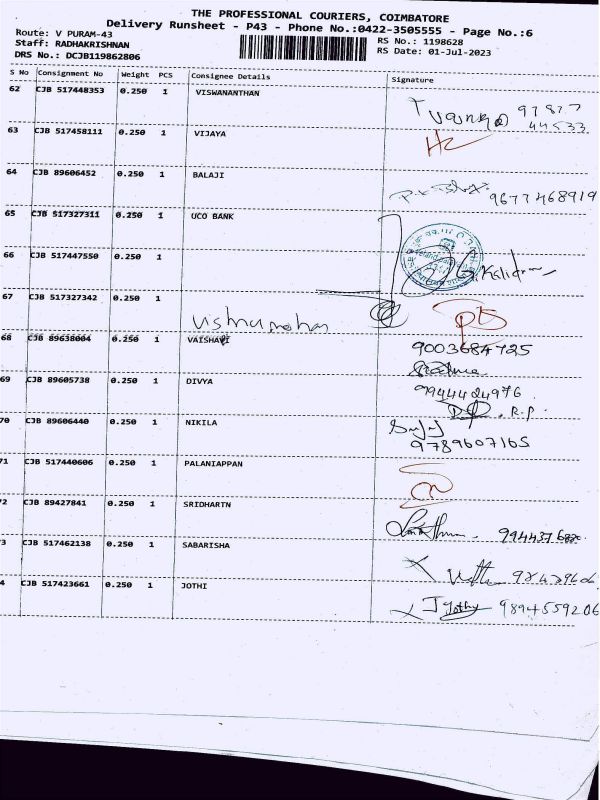 THE PROFESSIONAL COURIERS, COIMBATORE
Delivery Runsheet - P43 - Phone No.:0422-3505555 - Page No.:6
Route: V PURAM-43
Staff: RADHAKRISHNAN RS No.: 1198628
DRS No.: DCJB119862806 RS Date: 01-Jul-2023
S No Consignment No Weight PCS Consignee Details Signature
62 CJB 517448353 0.250 1 VISWANANTHAN
63 CJB 517458111 0.250 1 VIJAYA
64 CJB 89606452 0.250 1 BALAJI
9677468919
65 CJB 517327311 0.250 1 UCO BANK
66 CJB 517447550 0.250 1
67 CJB 517327342 0.250 1
Vishnu mohan
68 CJB 89638004 0.250 1 VAISHAVI
9003684725
69 CJB 89605738 0.250 1 DIVYA
9944424976
R.P.
70 CJB 89606440 0.250 1 NIKILA
9789607165
71 CJB 517440606 0.250 1 PALANIAPPAN
72 CJB 89427841 0.250 1 SRIDHARTN
3 CJB 517462138 0.250 1 SABARISHA
4 CJB 517423661 0.250 1 JOTHI
J Jothy 9894559206